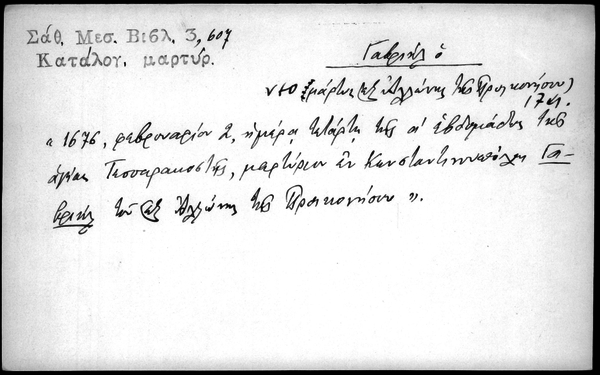 Σάθ. Μεσ. Βιβλ. 3, 607
Κατάλογ. μαρτύρ.
Γαβριὴλ ὁ
νεομάρτυς (ἐξ Ἀλλώνης τῆς Προικονήσου)
17 αἰ.
« 1676, φεβρουαρίου 2, ἡμέρᾳ τετάρτῃ τῆς α' ἑβδομάδος τῆς
ἁγίας Τεσσαρακοστῆς, μαρτύριον ἐν Κωνσταντινουπόλει Γα-
βριὴλ τοῦ ἐξ Ἀλλώνης τῆς Προικονήσου ».